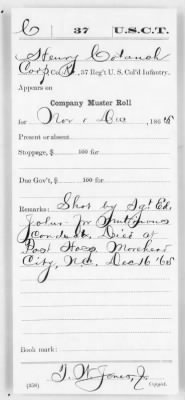 C 37 U.S.C.T.
Henry Cotanch
Corp Co. K, 37 Reg't U. S. Col'd Infantry.
Appears on
Company Muster Roll
for Nov & Dec, 1865
Present or absent
Stoppage, $ 100 for
Due Gov't, $ 100 for
Remarks: Shot by Sgt Ed.
John
condach. Died at
Post Hosp Morehead
City, N.C. Dec 16 '65
Book mark:
T. W. Jones, Jr
(358) Copyist.